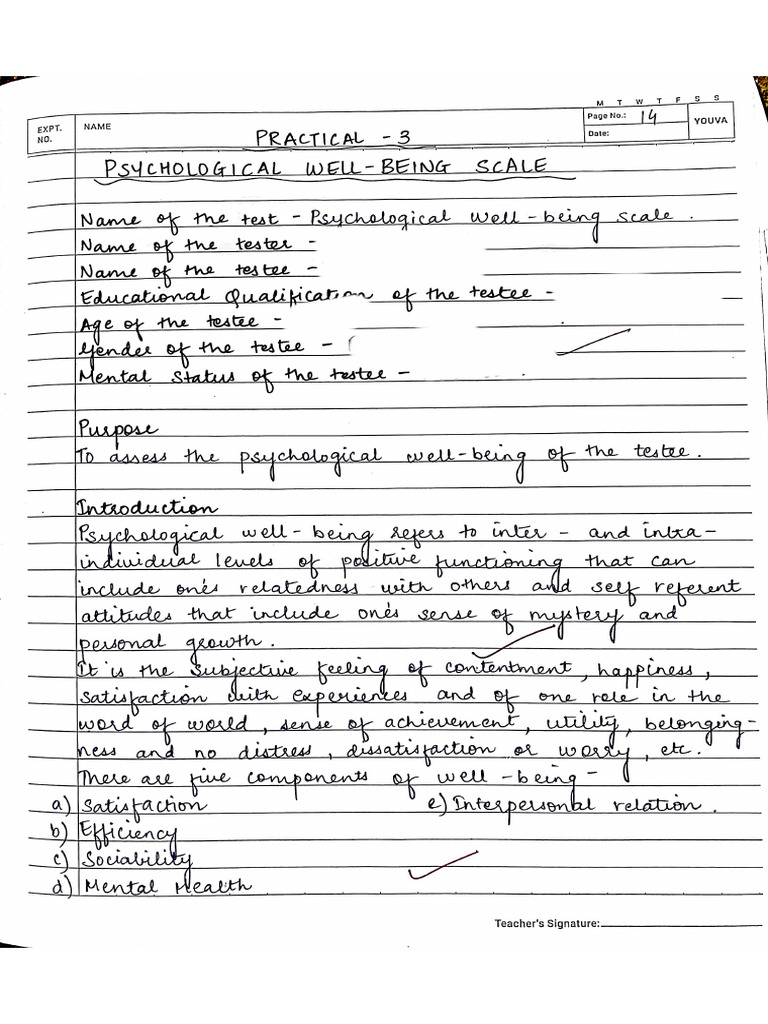 M T W T F S S
EXPT. NO.
NAME
Page No.: 14
YOUVA
Date:
PRACTICAL - 3
PSYCHOLOGICAL WELL-BEING SCALE
Name of the test - Psychological well-being scale.
Name of the tester -
Name of the testee -
Educational Qualification of the testee -
Age of the testee -
Gender of the testee -
Mental Status of the testee -
Purpose
To assess the psychological well-being of the testee.
Introduction
Psychological well-being refers to inter- and intra-
individual levels of positive functioning that can
include one's relatedness with others and self referent
attitudes that include one's sense of mystery and
personal growth.
It is the subjective feeling of contentment, happiness,
satisfaction with experiences and of one role in the
word of world, sense of achievement, utility, belonging-
ness and no distress, dissatisfaction or worry, etc.
There are five components of well-being-
a) Satisfaction e) Interpersonal relation.
b) Efficiency
c) Sociability
d) Mental Health
Teacher's Signature: